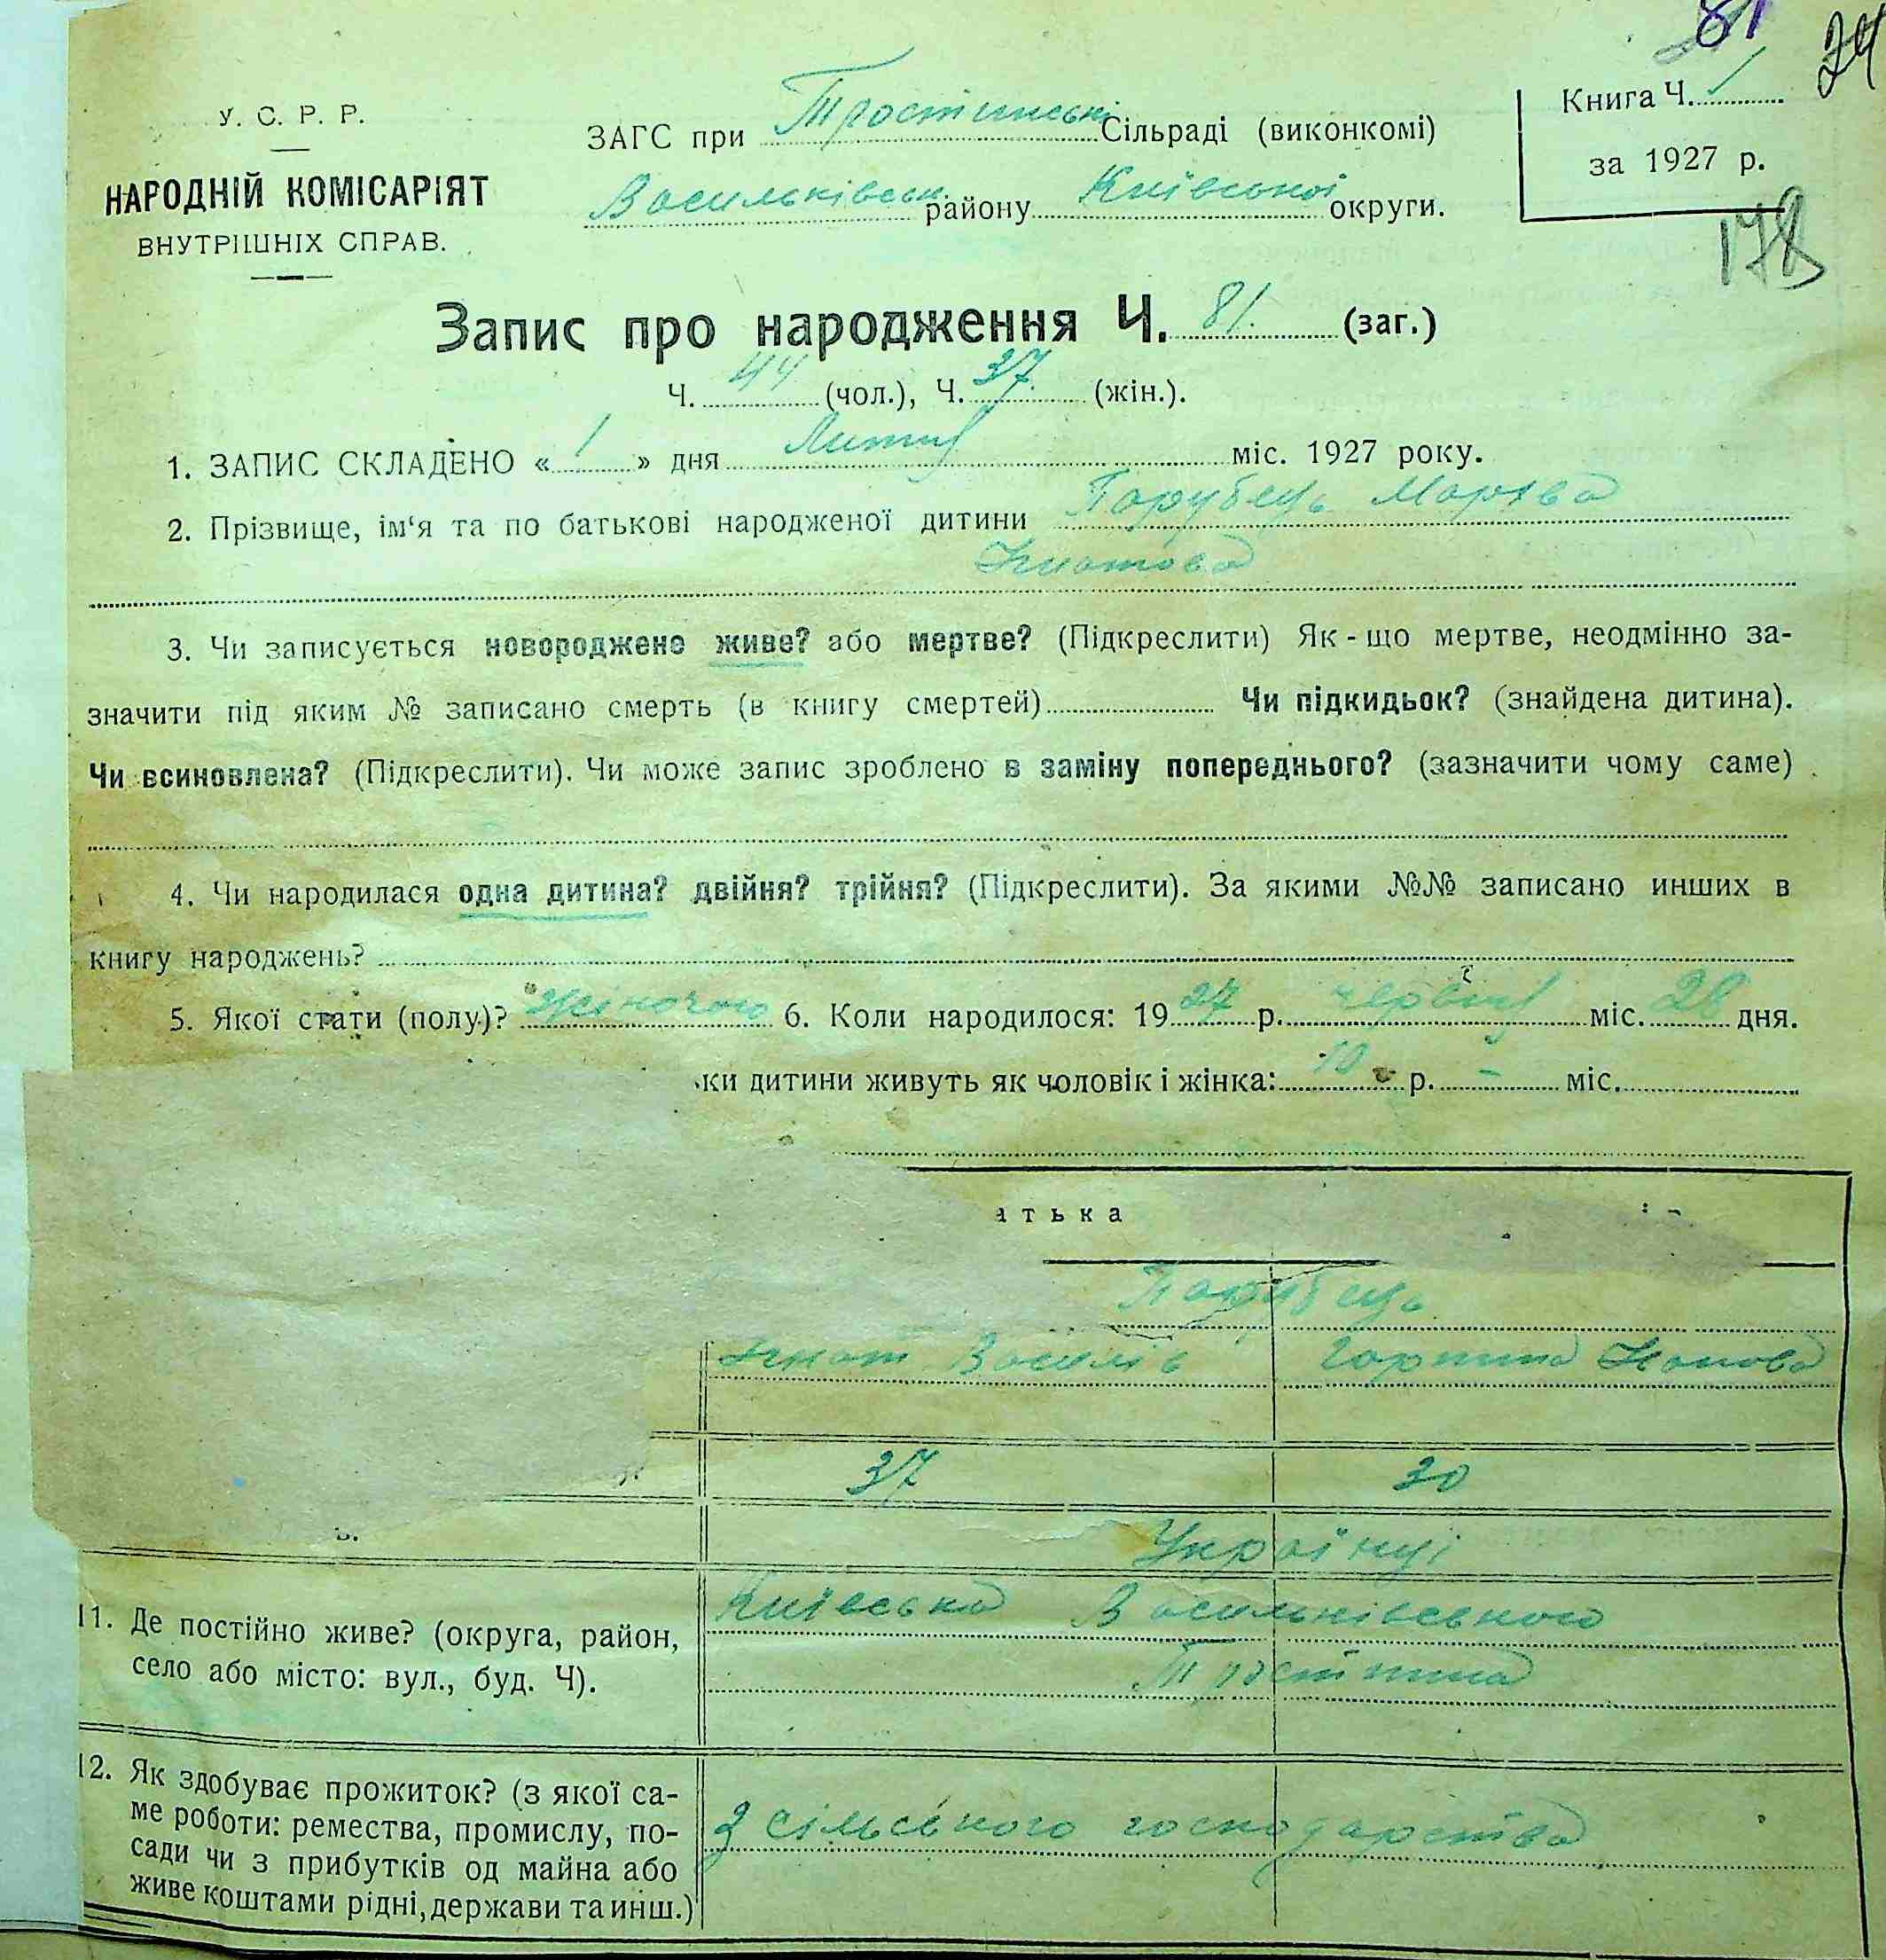 81
24
У. С. Р. Р.
НАРОДНІЙ КОМІСАРІЯТ
ВНУТРІШНІХ СПРАВ.
ЗАГС при Тростинські Сільраді (виконкомі)
Васильківськ. району Київської округи.
Книга Ч. 1
за 1927 р.
178
Запис про народження Ч. 81. (заг.)
Ч. 44 (чол.), Ч. 37. (жін.).
1. ЗАПИС СКЛАДЕНО « 1 » дня Липня міс. 1927 року.
2. Прізвище, ім‘я та по батькові народженої дитини Парубець
Гнатова
3. Чи записується новороджене живе? або мертве? (Підкреслити) Як - що мертве, неодмінно за-
значити під яким № записано смерть (в книгу смертей) Чи підкидьок? (знайдена дитина).
Чи всиновлена? (Підкреслити). Чи може запис зроблено в заміну попереднього? (зазначити чому саме)
4. Чи народилася одна дитина? двійня? трійня? (Підкреслити). За якими №№ записано инших в
книгу народжень?
5. Якої стати (полу)? Жіночого 6. Коли народилося: 1927 р. червня міс. 28 дня.
ки дитини живуть як чоловік і жінка: 10 р. – міс.
атька
Парубець
Гнат Василів Горпина
37 30
в.
Українці
11. Де постійно живе? (округа, район,
село або місто: вул., буд. Ч).
Київська Васильківського
Тростинка
12. Як здобуває прожиток? (з якої са-
ме роботи: ремества, промислу, по-
сади чи з прибутків од майна або
живе коштами рідні, держави та инш.)
З сільського господарства